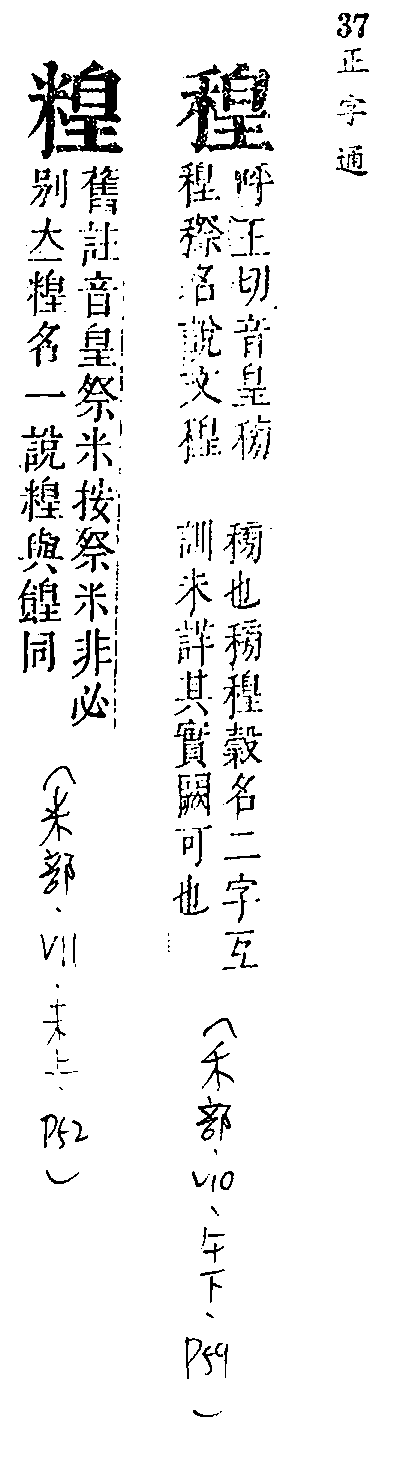 37正字通
䅣
呼王切音皇䅭
䅣穄名說文䅣
䅭也䅭䅣穀名二字互
訓未詳其實闕可也
（禾部、V10、午下、P59）
䊗
舊註音皇祭米按祭米非必
别立䊗名一說䊗與餭同
（米部、V11、未上、P52）